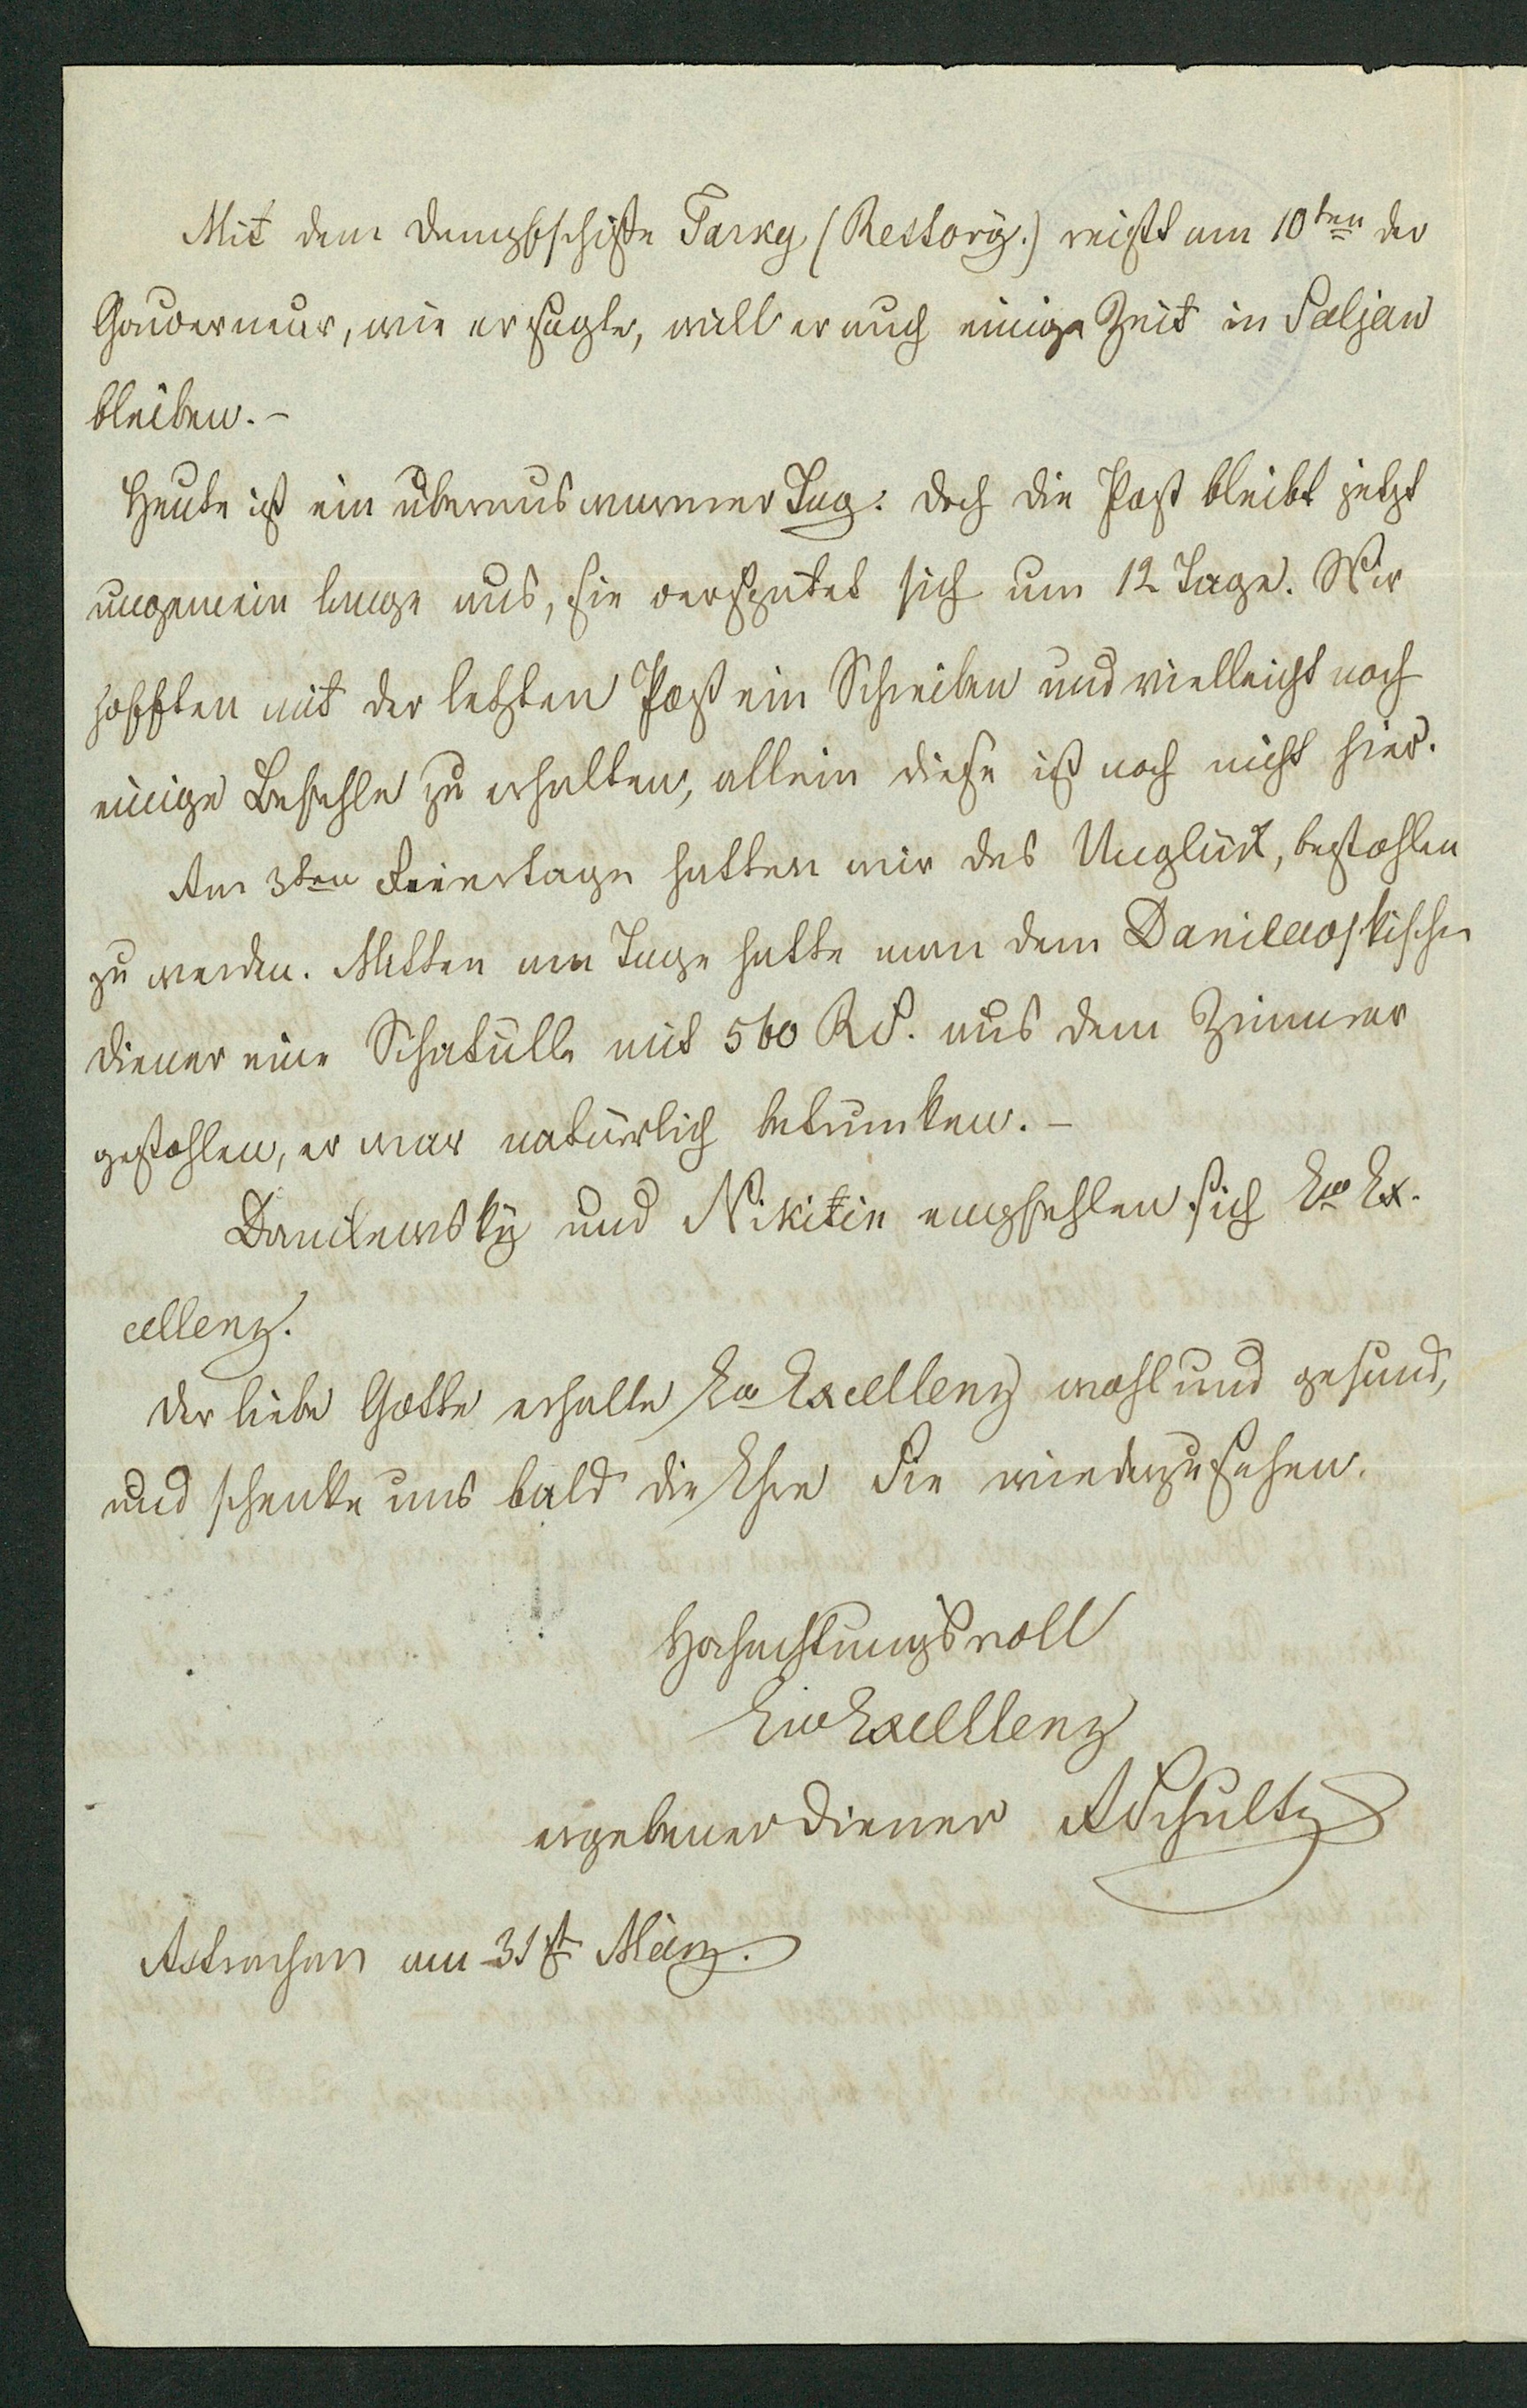 Mit dem Dampfschiffe Tarky (Restorÿ.) reist am 10ten der
Gouverneur, wie er sagte, will er auch einige Zeit in Saljan
bleiben. –
Heute ist ein überaus warmer Tag: doch die Post bleibt jetzt
ungemein lange aus, sie verspätet sich um 12 Tage. Wir
hofften mit der letzten Post ein Schreiben und vielleicht noch
einige Befehle zu erhalten, allein diese ist noch nicht hier.
Am 3ten Feiertage hatten wir das Unglück, bestohlen
zu werden. Mitten am Tage hatte man dem Danilewskischen
Diener eine Schatulle mit 560 RS. aus dem Zimmer
gestohlen, er war natürlich betrunken. –
Danilewskÿ und Nikitin empfehlen sich Ew Ex-
cellenz.
Der liebe Gott erhalte Ew Excellenz wohl und gesund,
und schenke uns bald die Ehre Sie wiederzusehen.
Hochachtungsvoll
Ew Excelllenz
ergebener Diener ASchultz
Astrachan am 31st März.